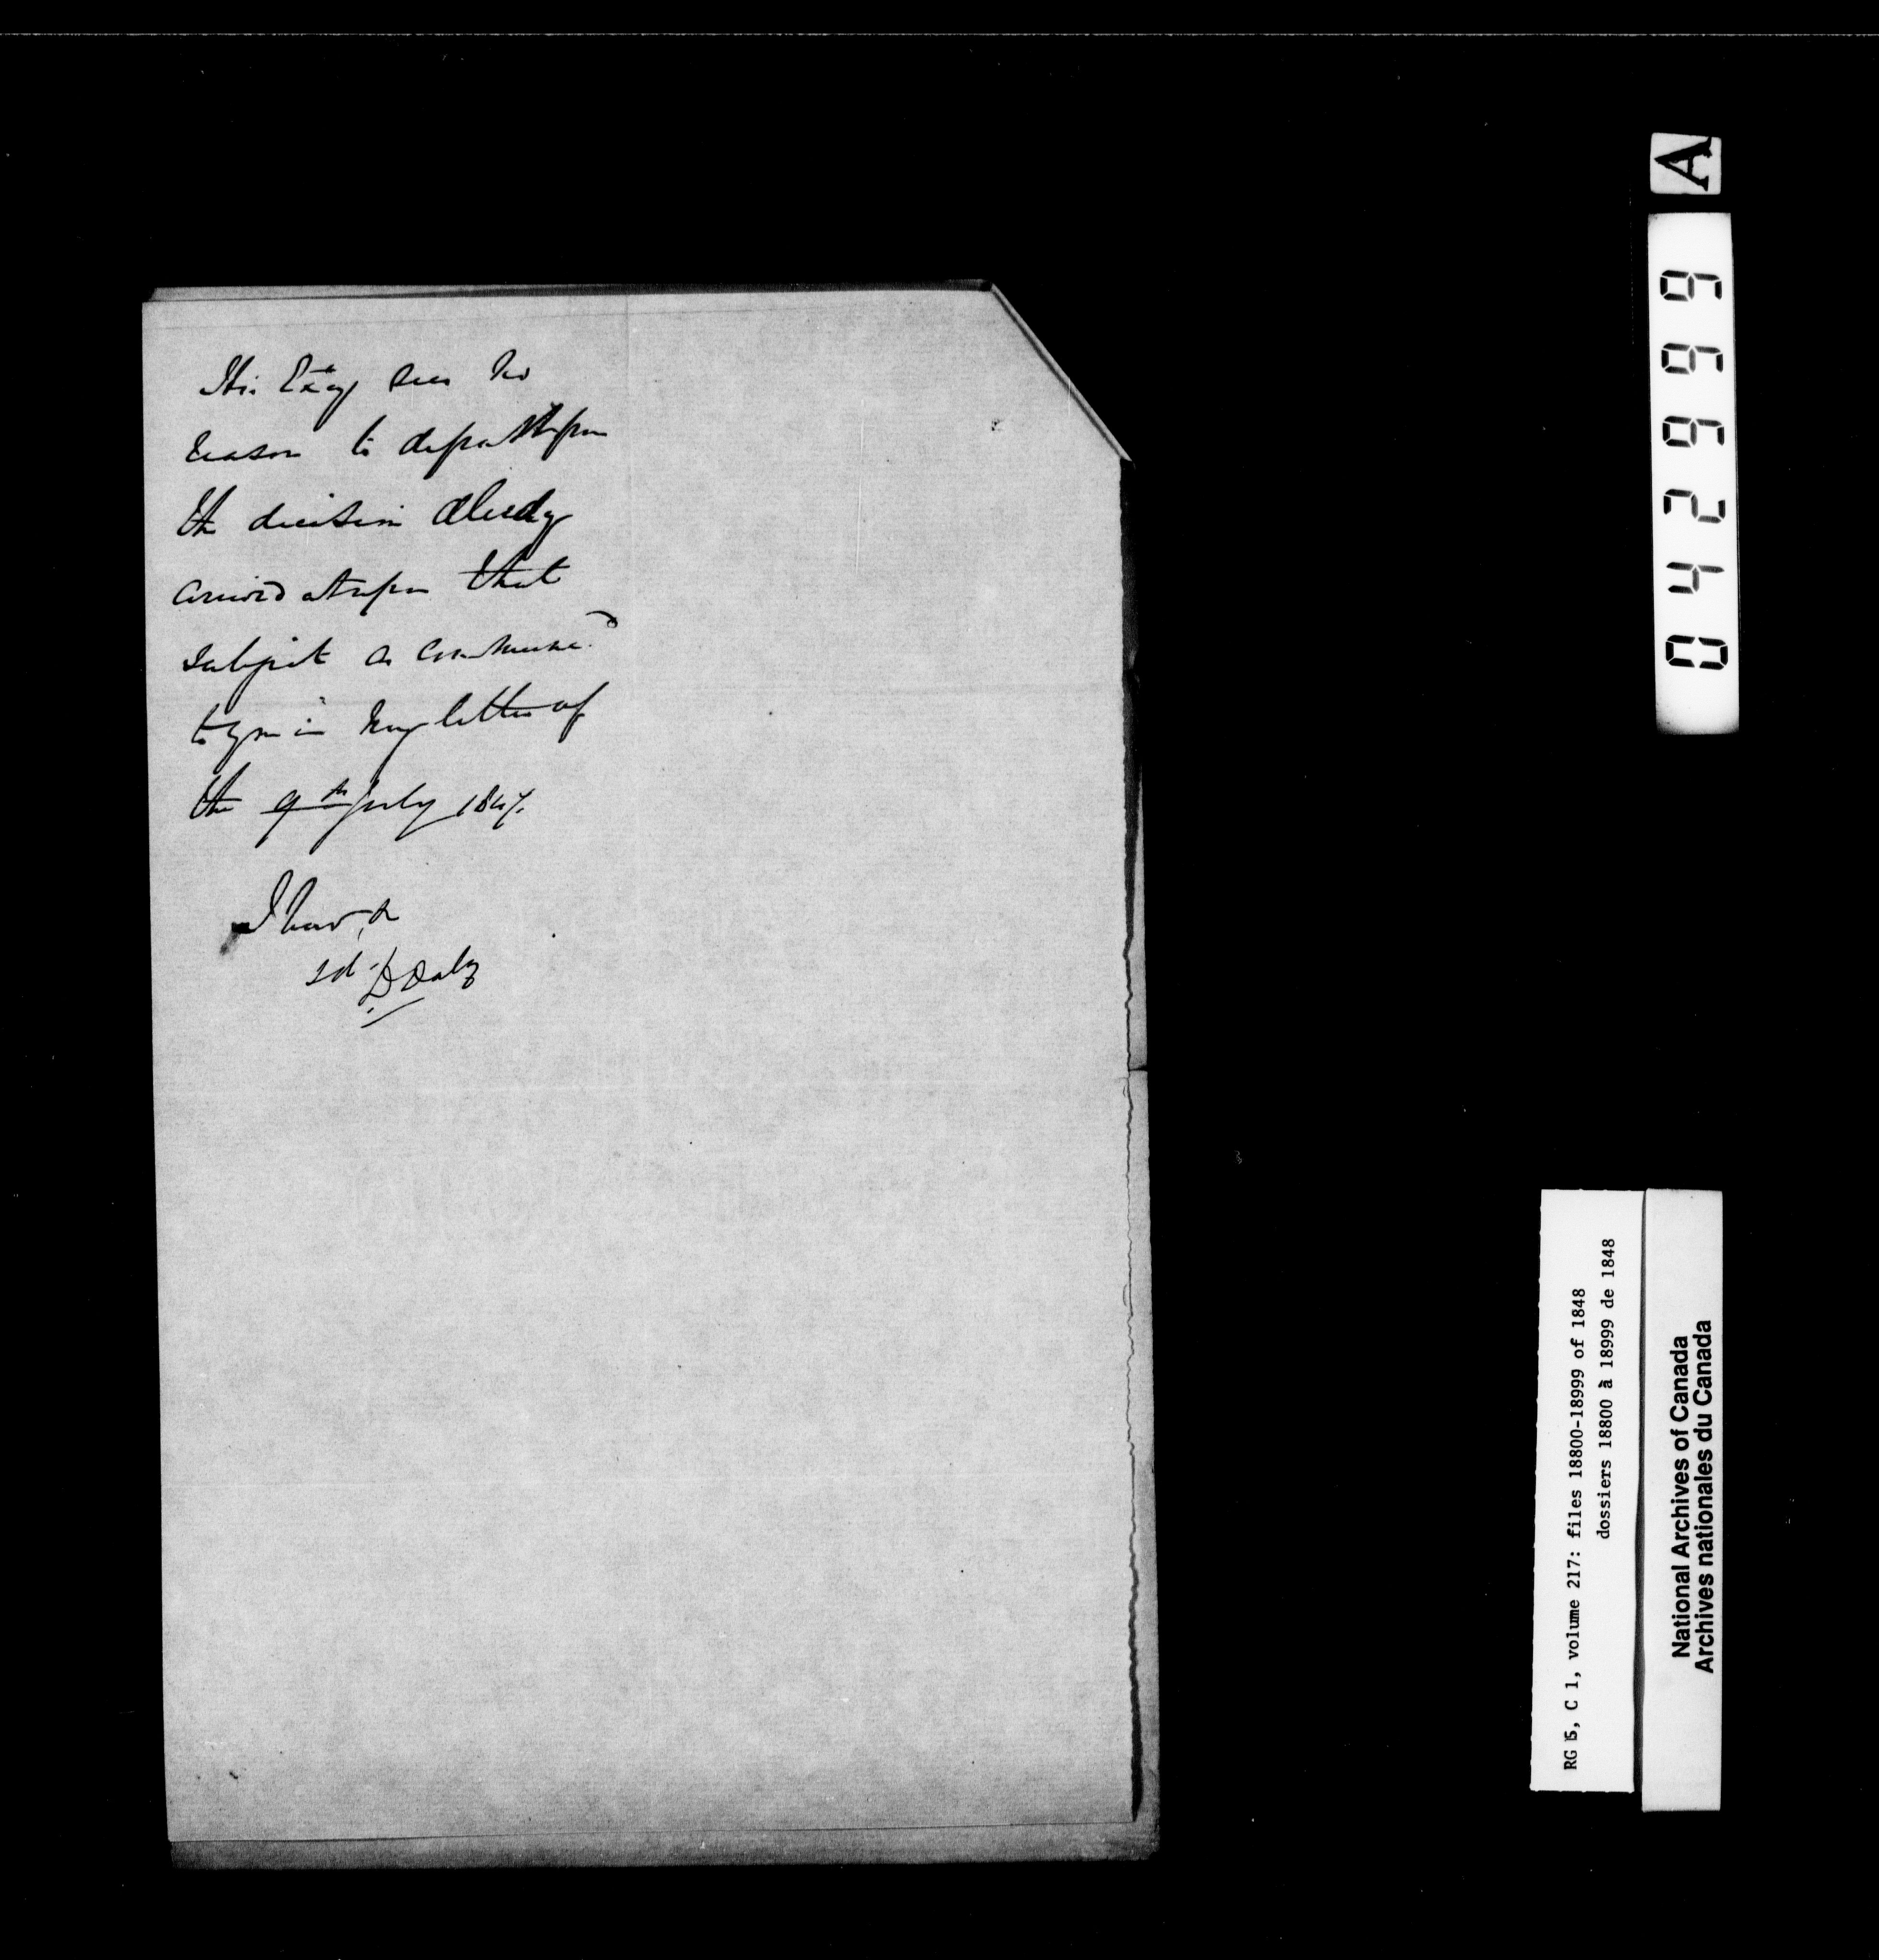 His Excy sees no
reason to depart from
the decision already
arrived at upon that
subject as commund
to you in my letter of
the 9th July 1847.
I have, &c
sd. D Daly
A
042666
RG 5, C 1, volume 217: files 18800-18999 of 1848
dossiers 18800 à 18999 de 1848
National Archives of Canada
Archives nationales du Canada